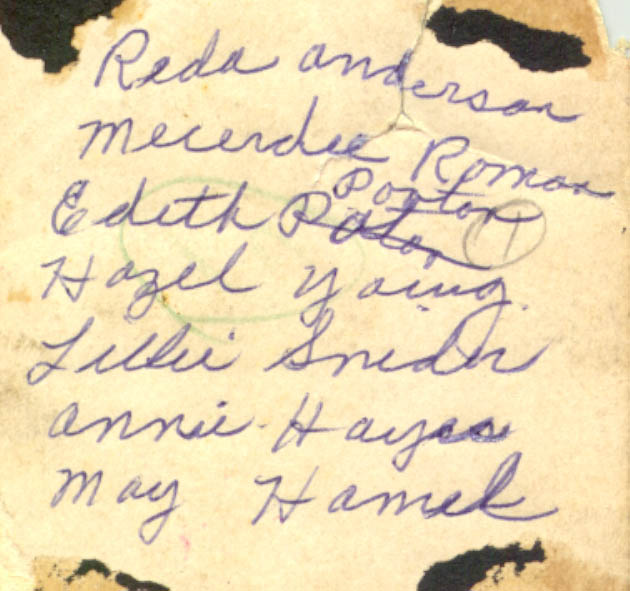 Reda anderson
Mecerdee Roman
Porton
Edeth Poton
Hazel young
Lillie Snider
annie Hayes
May Hamek